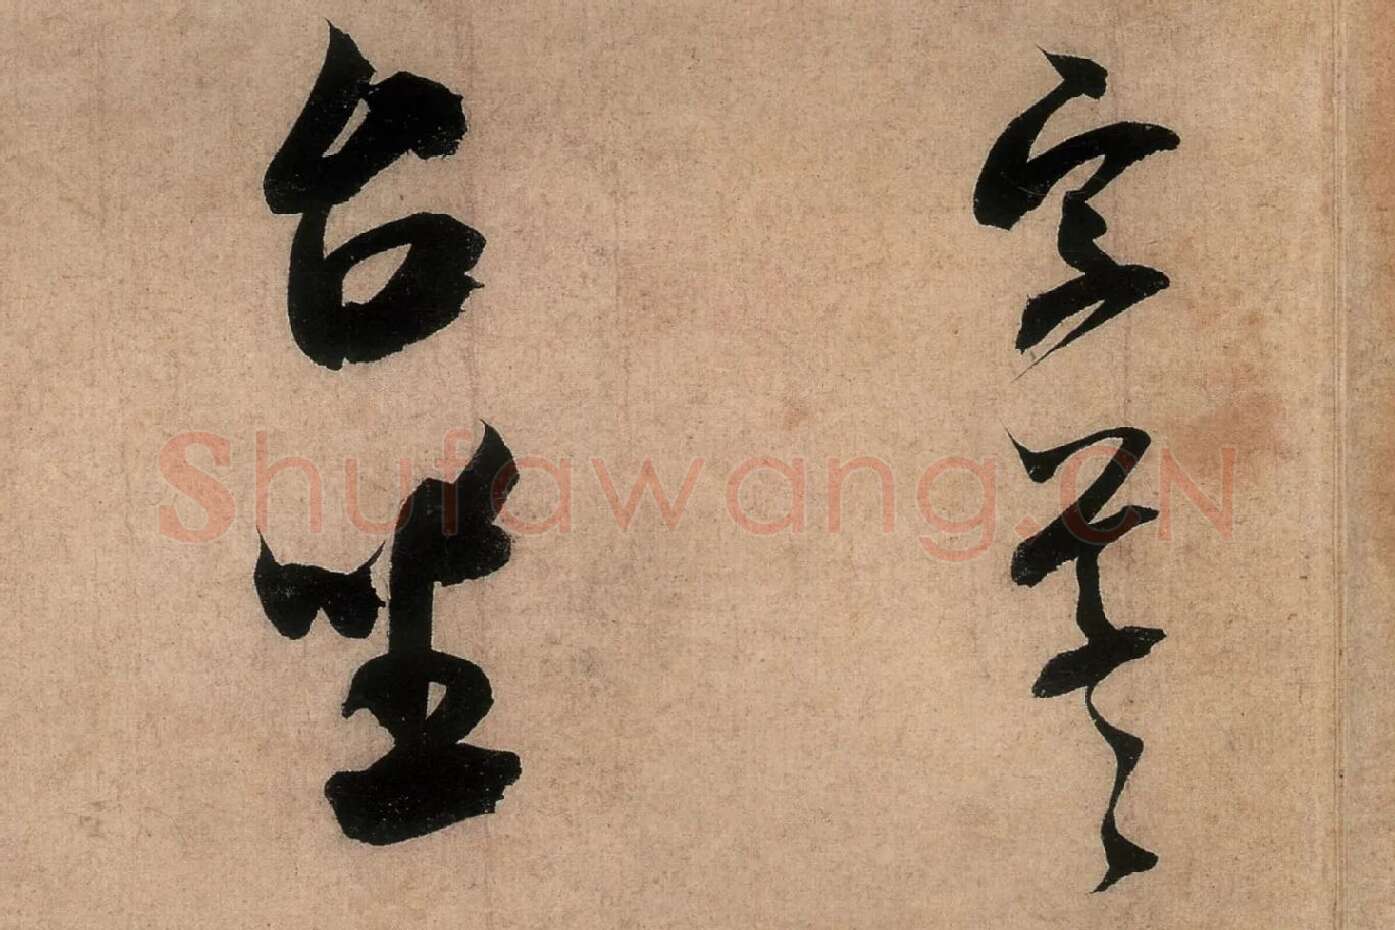 宣義
台坐
Shufawang.CN